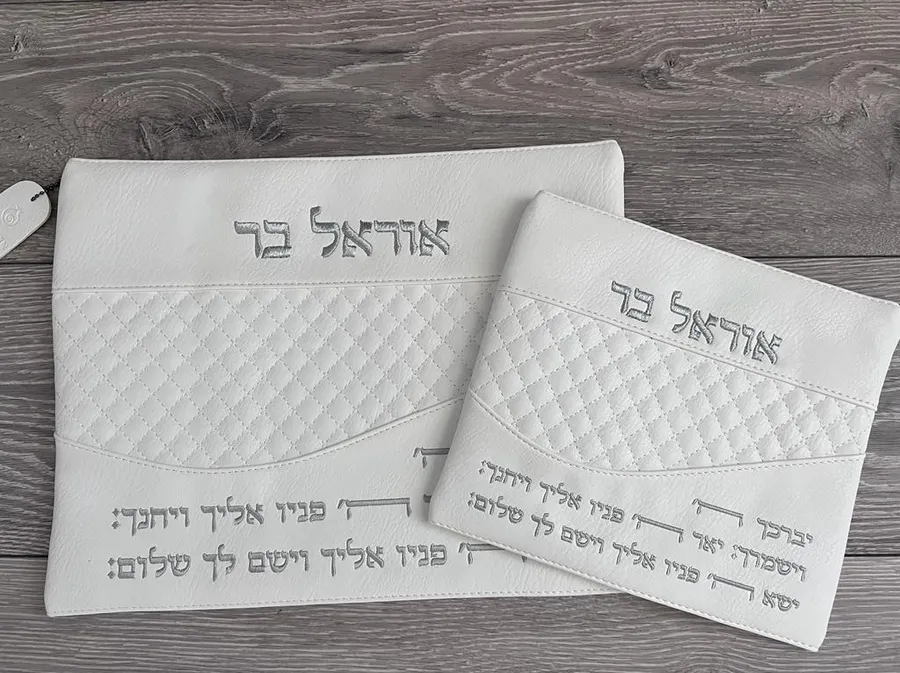 אוראל בר
ה'
ה' פניו אליך ויחנך:
ה' פניו אליך וישם לך שלום:
אוראל בר
יברכך ה'
וישמרך: יאר ה' פניו אליך ויחנך:
ישא ה' פניו אליך וישם לך שלום: